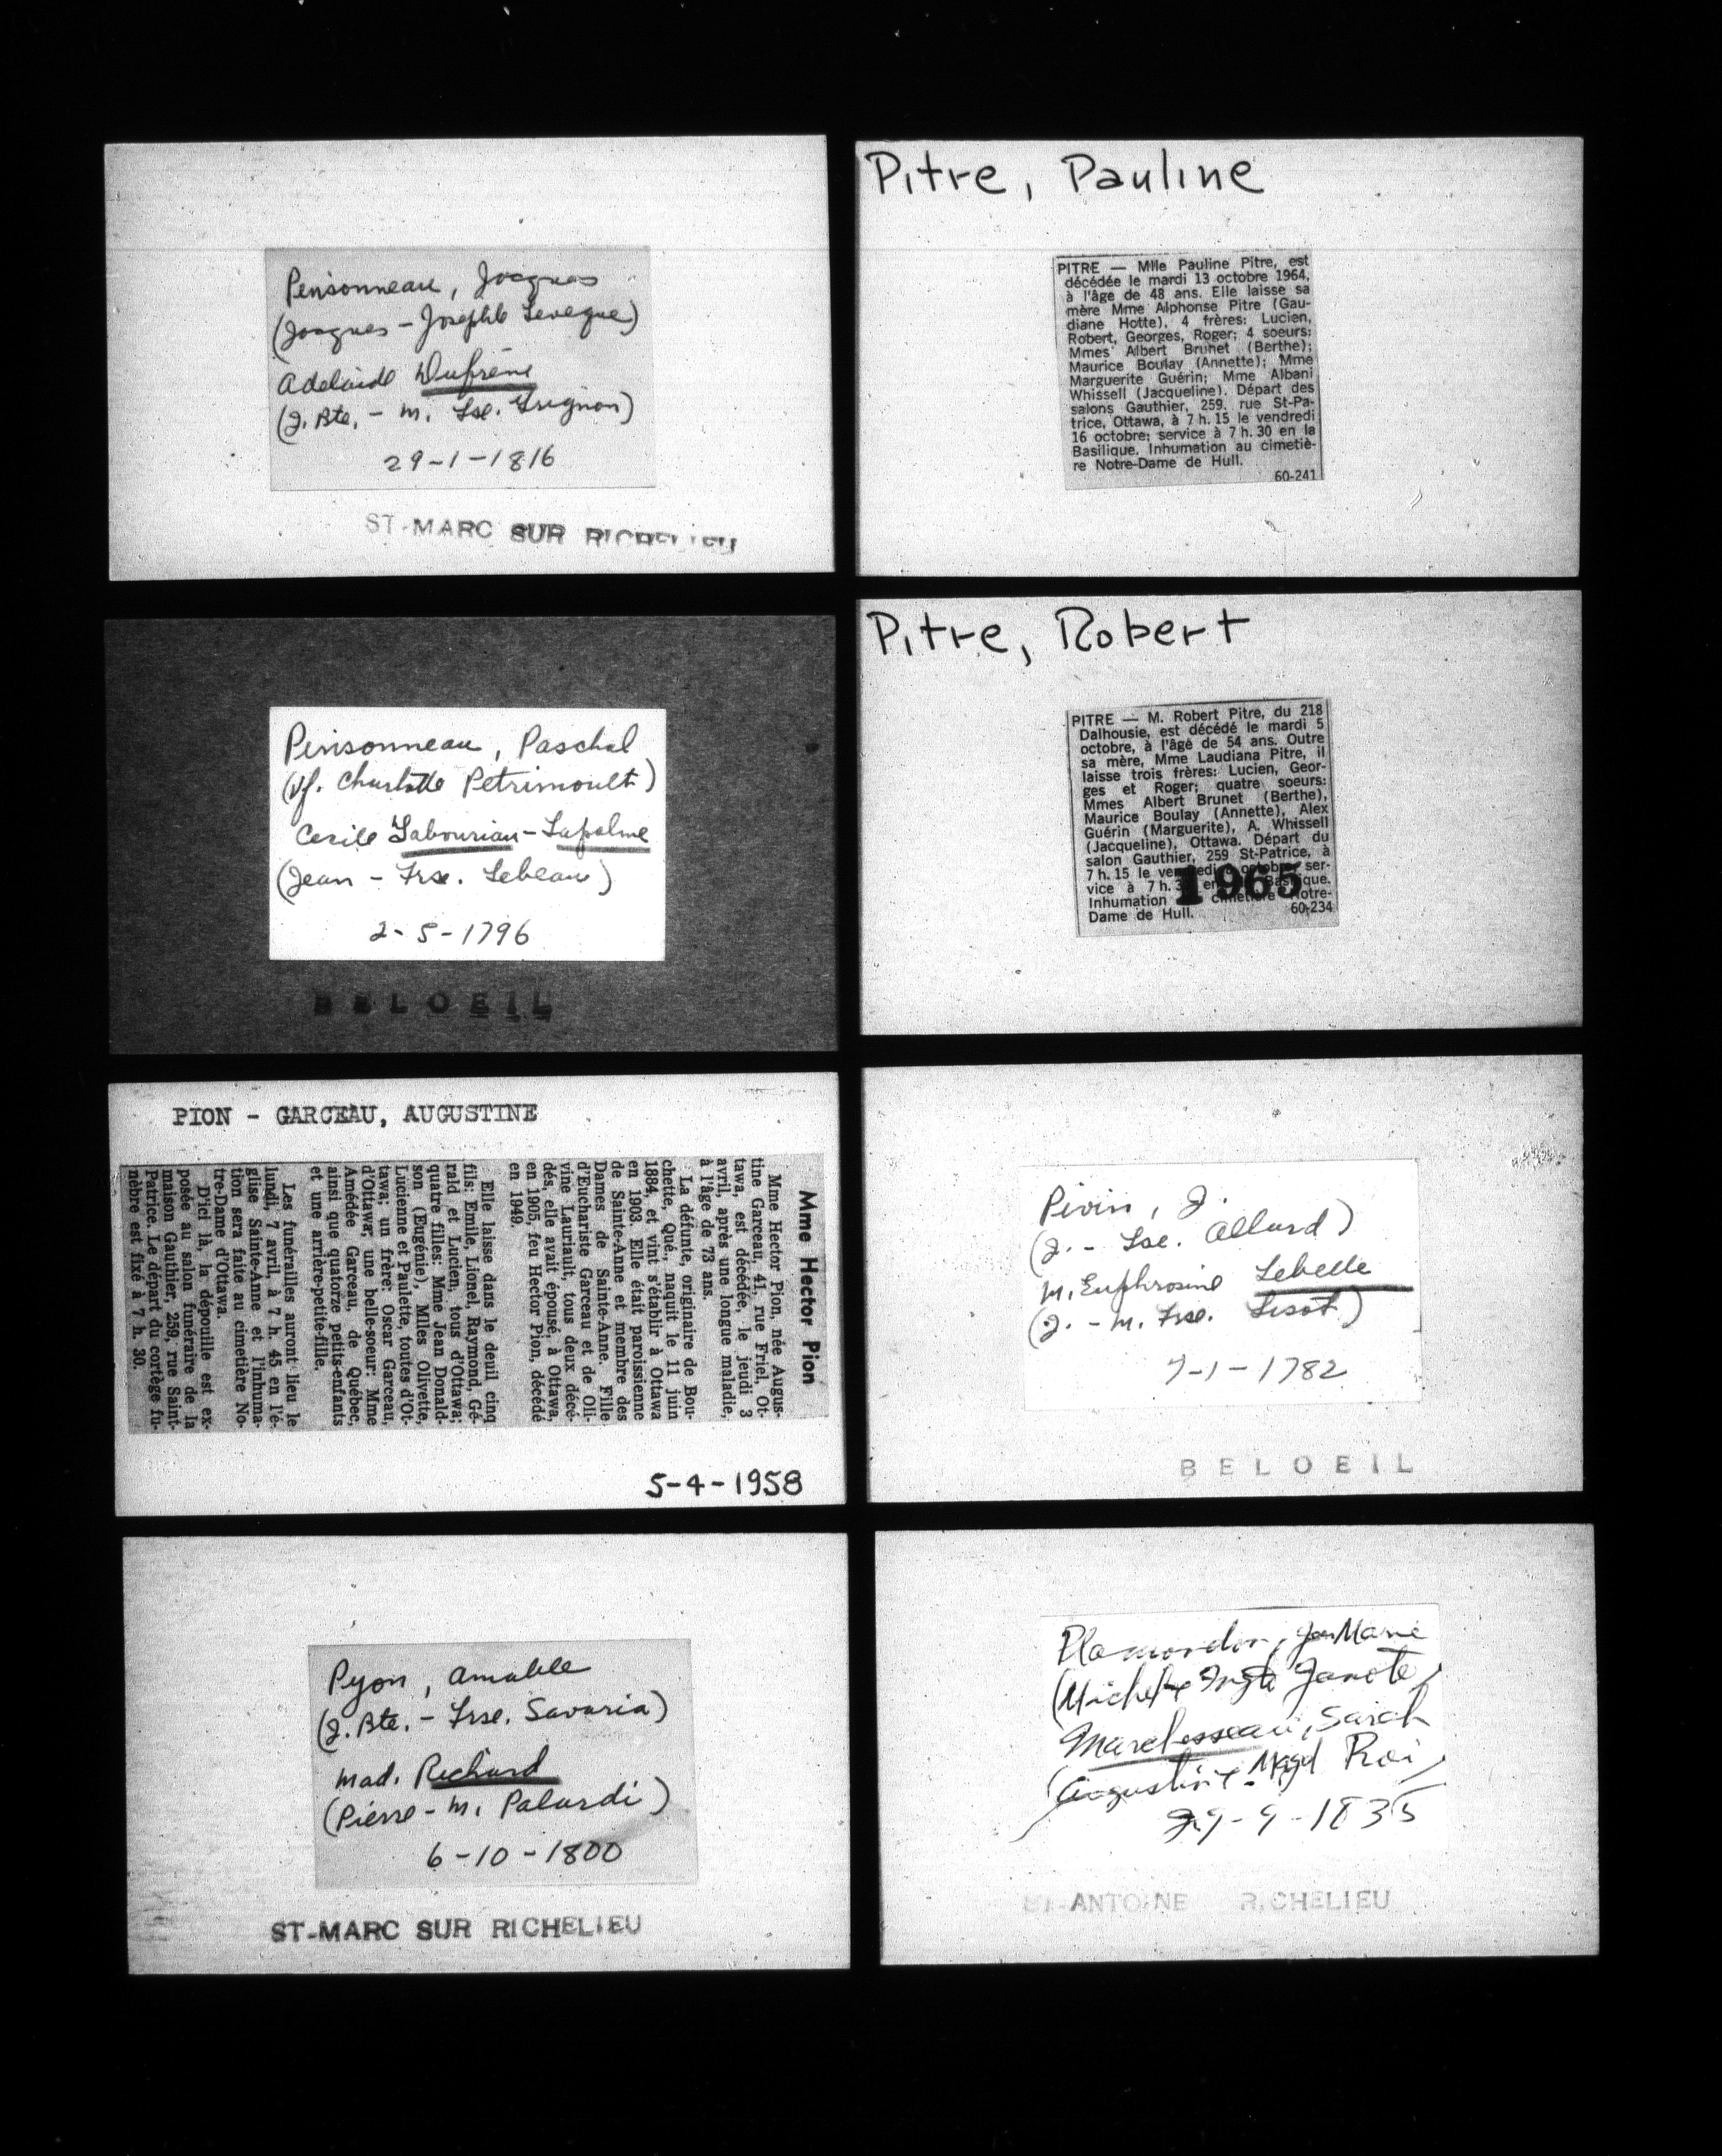 Pinsonneau, Jacques
(Jacques - Josephte Leveque)
Adelaide Dufrene
(J. Bte. - M. Fse. Grignon)
29-1-1816
ST-MARC SUR RICHELIEU
Pinsonneau, Paschal
(Vf. Charlotte Petrimoult)
Cecile Labourian-Lapalme
(Jean - Frse. Lebeau)
2-5-1796
BELOEIL
PION - GARCEAU, AUGUSTINE
Mme Hector Pion
Mme Hector Pion, née Augus-
tine Garceau, 41, rue Friel, Ot-
tawa, est décédée, le jeudi 3
avril, après une longue maladie,
à l'âge de 73 ans.
La défunte, originaire de Bou-
chette, Qué., naquit le 11 juin
1884, et vint s'établir à Ottawa
en 1903. Elle était paroissienne
de Sainte-Anne et membre des
Dames de Sainte-Anne. Fille
d'Euchariste Garceau et de Oli-
vine Lauriault, tous deux décé-
dés, elle avait épousé, à Ottawa,
en 1905, feu Hector Pion, décédé
en 1949.
Elle laisse dans le deuil cinq
fils: Emile, Lionel, Raymond, Gé-
rald et Lucien, tous d'Ottawa;
quatre filles: Mme Jean Donald-
son (Eugénie), Mlles Olivette,
Lucienne et Paulette, toutes d'Ot-
tawa; un frère: Oscar Garceau,
d'Ottawa; une belle-soeur: Mme
Amédée Garceau, de Québec,
ainsi que quatorze petits-enfants
et une arrière-petite-fille.
Les funérailles auront lieu le
lundi, 7 avril, à 7 h. 45 en l'é-
glise Sainte-Anne et l'inhuma-
tion sera faite au cimetière No-
tre-Dame d'Ottawa.
D'ici là, la dépouille est ex-
posée au salon funéraire de la
maison Gauthier, 259, rue Saint-
Patrice. Le départ du cortège fu-
nèbre est fixé à 7 h. 30.
5-4-1958
Pyon, Amable
(J. Bte. - Frse. Savaria)
Mad. Richard
(Pierre - M. Palardi)
6-10-1800
ST-MARC SUR RICHELIEU
Pitre, Pauline
PITRE — Mlle Pauline Pitre, est
décédée le mardi 13 octobre 1964,
à l'âge de 48 ans. Elle laisse sa
mère Mme Alphonse Pitre (Gau-
diane Hotte), 4 frères: Lucien,
Robert, Georges, Roger; 4 soeurs:
Mmes Albert Brunet (Berthe);
Maurice Boulay (Annette); Mme
Marguerite Guérin; Mme Albani
Whissell (Jacqueline). Départ des
salons Gauthier, 259, rue St-Pa-
trice, Ottawa, à 7 h. 15 le vendredi
16 octobre; service à 7 h. 30 en la
Basilique. Inhumation au cimetiè-
re Notre-Dame de Hull.
60-241
Pitre, Robert
PITRE — M. Robert Pitre, du 218
Dalhousie, est décédé le mardi 5
octobre, à l'âge de 54 ans. Outre
sa mère, Mme Laudiana Pitre, il
laisse trois frères: Lucien, Geor-
ges et Roger; quatre soeurs:
Mmes Albert Brunet (Berthe),
Maurice Boulay (Annette), Alex
Guérin (Marguerite), A. Whissell
(Jacqueline), Ottawa. Départ du
salon Gauthier, 259 St-Patrice, à
7 h. 15 le vendredi octobre ser-
vice à 7 h. 3 en Basilique.
Inhumation cimetière Notre-
Dame de Hull. 60-234
1965
Pivin, J.
(J. - Lse. Allard)
M. Euphrosine Lebelle
(J. - M. Frse. Lisot)
7-1-1782
BELOEIL
Plamondon, Jean Marie
(Michel & Janote)
Marchesseau, Sarah
(Augustin & Magd Roi)
29-9-1835
ST-ANTOINE RICHELIEU